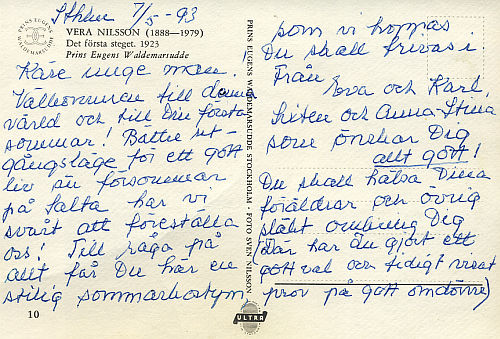 Sthlm 7/5-93
PRINS EUGENS WALDEMARSUDDE
VERA NILSSON (1888—1979)
Det första steget. 1923
Prins Eugens Waldemarsudde
Käre unge man.
Välkommen till denna
värld och till Din första
sommar! Bättre ut-
gångsläge för ett gott
liv än försommar
på Salta har vi
svårt att föreställa
oss! Till råga på
allt får Du här en
stilig sommarkostym
10
PRINS EUGENS WALDEMARSUDDE STOCKHOLM · FOTO SVEN NILSSON
ULTRA
som vi hoppas
Du skall trivas i.
Från
Eva och Karl,
Sixten och Anna-Stina
som önskar Dig
allt gott!
Du skall hälsa Dina
föräldrar och övrig
släkt omkring Dig
(Där har Du gjort ett
gott val och tidigt visat
prov på gott omdöme)